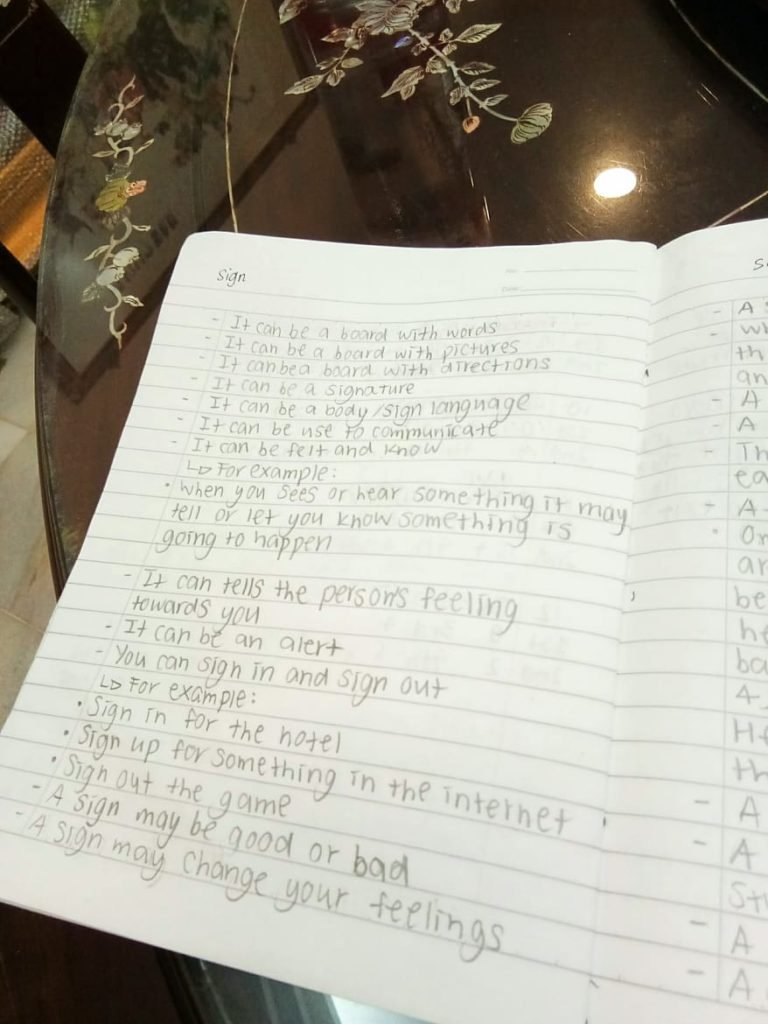 Sign
- It can be a board with words
- It can be a board with pictures
- It can be a board with directions
- It can be a signature
- It can be a body/sign language
- It can be use to communicate
- It can be felt and know
↳ For example:
• when you sees or hear something it may
tell or let you know something is
going to happen
- It can tells the person's feeling
towards you
- It can be an alert
- You can sign in and sign out
↳ For example:
• Sign in for the hotel
• Sign up for something in the internet
• Sign out the game
- A sign may be good or bad
- A sign may change your feelings
- A
- A
- A
- A
- A
- A
- A
- A